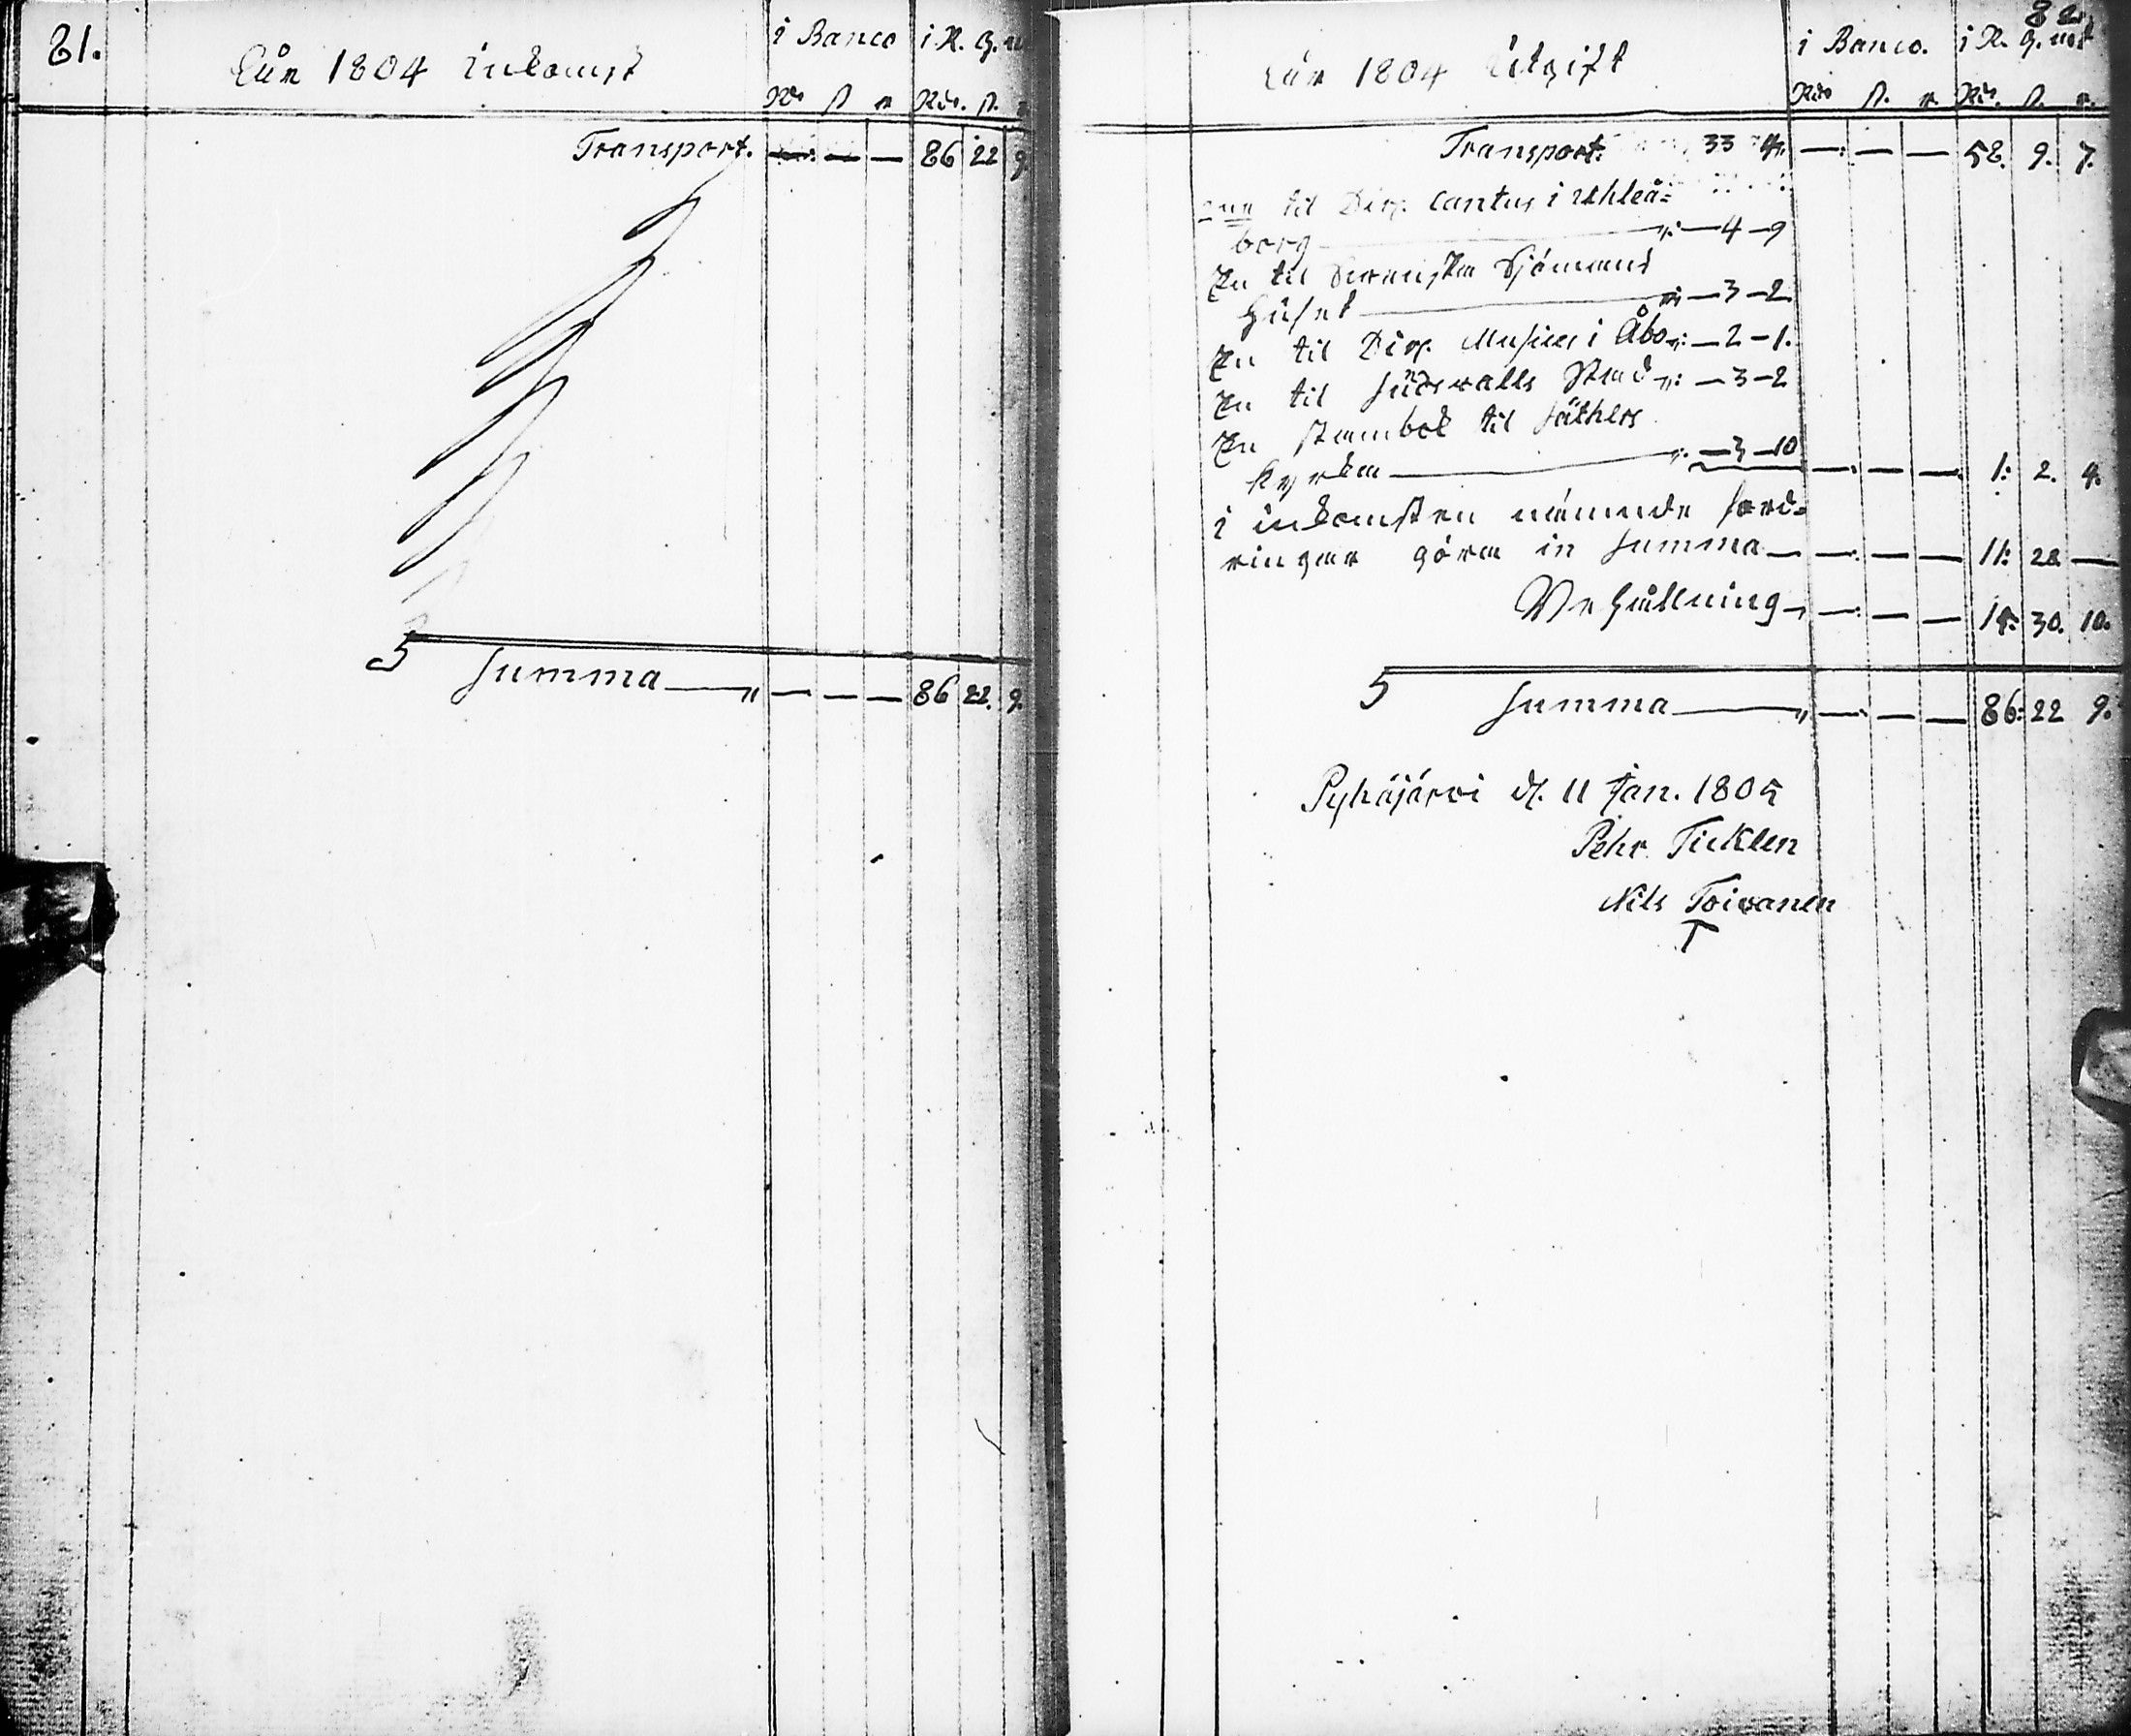 81.
För 1804 Inkomst
i Banco i R. G. 
Rdr ß r Rdr. ß.
Transport. — — — 86 22 9.
Summa — — — 86 22. 9.
82.
För 1804 Utgift
i Banco. i R. G. mt
Rdr ß. r Rdr. ß. r.
Transport: 33 4. — — — 58. 9. 7.
til Dir. Cantus i Uhleå=
borg — 4 — 9
En til Swenska Sjömans
Huset — 3 — 2
En til Dir. Musices i Åbo — 2 — 1.
En til Sundswalls Stad — 3 — 2
En stambok til Säthers
kyrka — 3 — 10 — — — 1: 2. 4.
i inkomsten nämnde ford=
ringar göra in Summa — — — 11: 28 —
Behållning — — — 15: 30. 10.
Summa — — — 86: 22 9.
Pyhäjärvi d. 11 Jan. 1805
Pehr Ticklen
Nils Toivanen
T